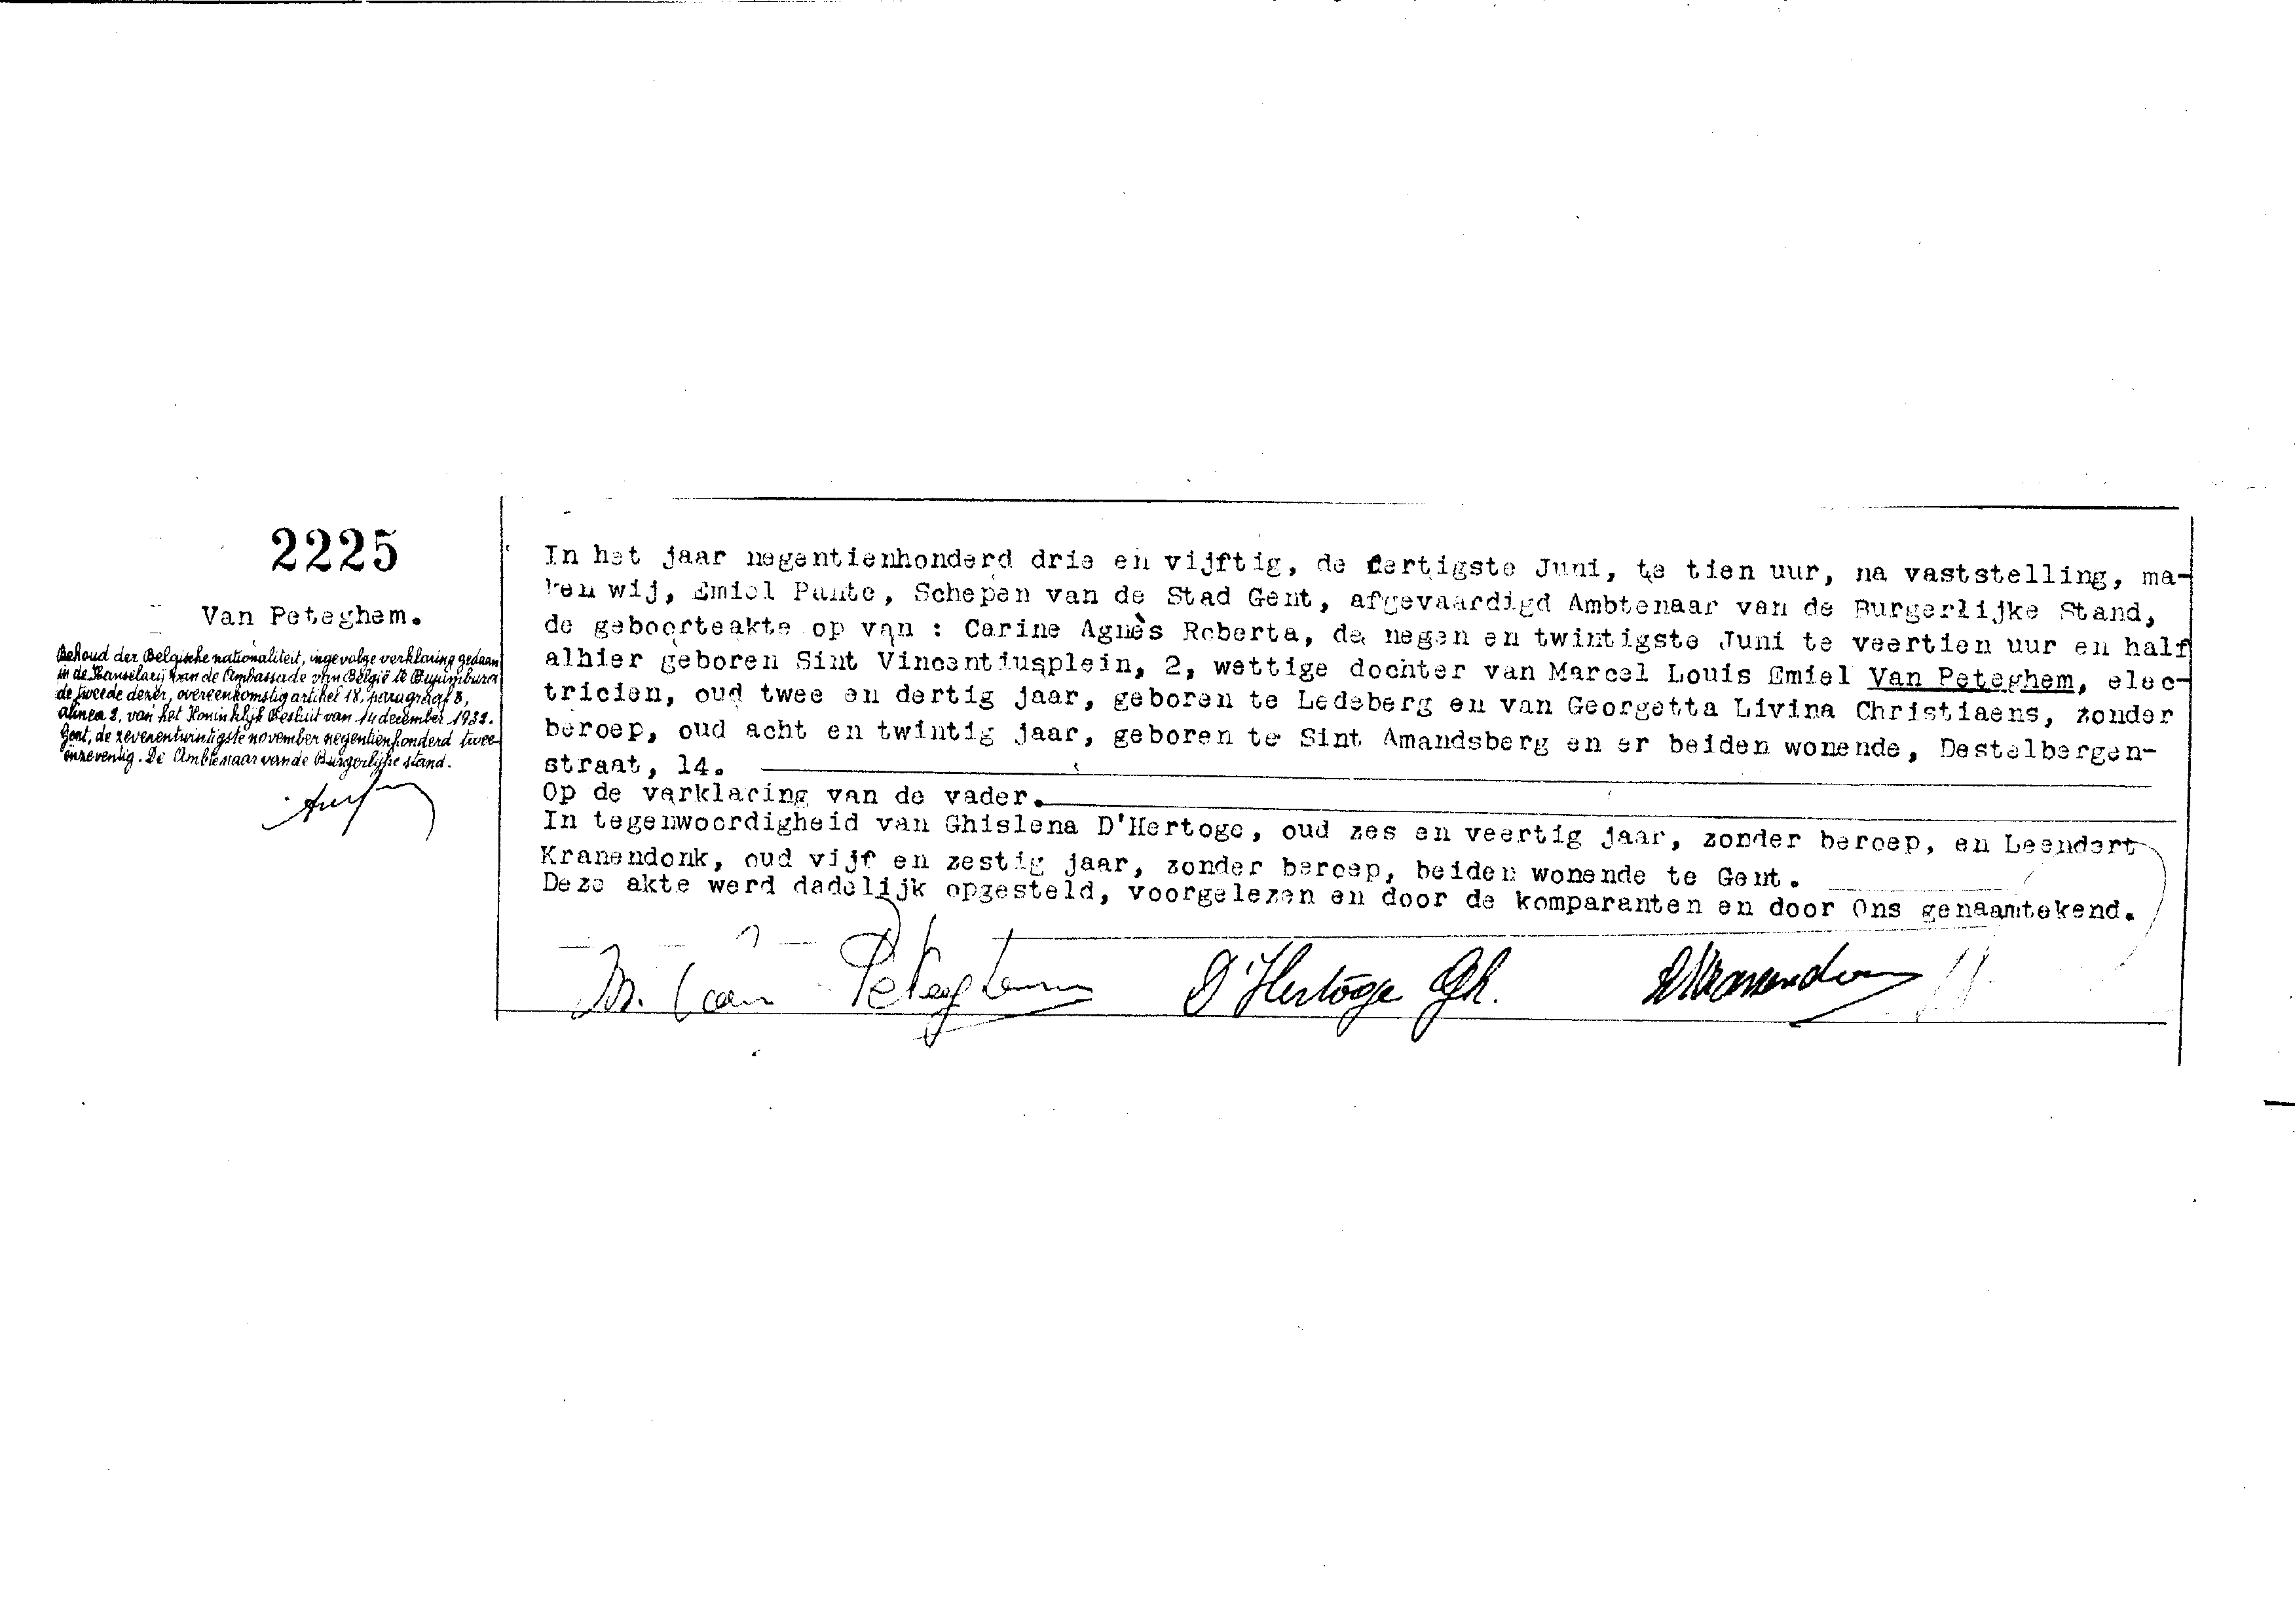 2225
Van Peteghem.
Behoud der Belgische nationaliteit, ingevolge verklaring gedaan
in de Kanselarij van de Ambassade van België te Bujumbura
de tweede dezer, overeenkomstig artikel 18, paragraaf 3,
alinea 2, van het Koninklijk Besluit van 14 december 1932.
Gent, de zevenentwintigste november negentienhonderd twee
enzeventig. De Ambtenaar van de Burgerlijke stand.
In het jaar negentienhonderd drie en vijftig, de dertigste Juni, te tien uur, na vaststelling, ma-
ken wij, Emiel Pante, Schepen van de Stad Gent, afgevaardigd Ambtenaar van de Burgerlijke Stand,
de geboorteakte op van : Carine Agnès Roberta, de negen en twintigste Juni te veertien uur en half
alhier geboren Sint Vincentiusplein, 2, wettige dochter van Marcel Louis Emiel Van Peteghem, elec-
tricien, oud twee en dertig jaar, geboren te Ledeberg en van Georgetta Livina Christiaens, zonder
beroep, oud acht en twintig jaar, geboren te Sint Amandsberg en er beiden wonende, Destelbergen-
straat, 14.
Op de verklaring van de vader.
In tegenwoordigheid van Ghislena D'Hertoge, oud zes en veertig jaar, zonder beroep, en Leendert
Kranendonk, oud vijf en zestig jaar, zonder beroep, beiden wonende te Gent.
Deze akte werd dadelijk opgesteld, voorgelezen en door de komparanten en door Ons genaamtekend.
M. Van Peteghem D'Hertoge Gh.